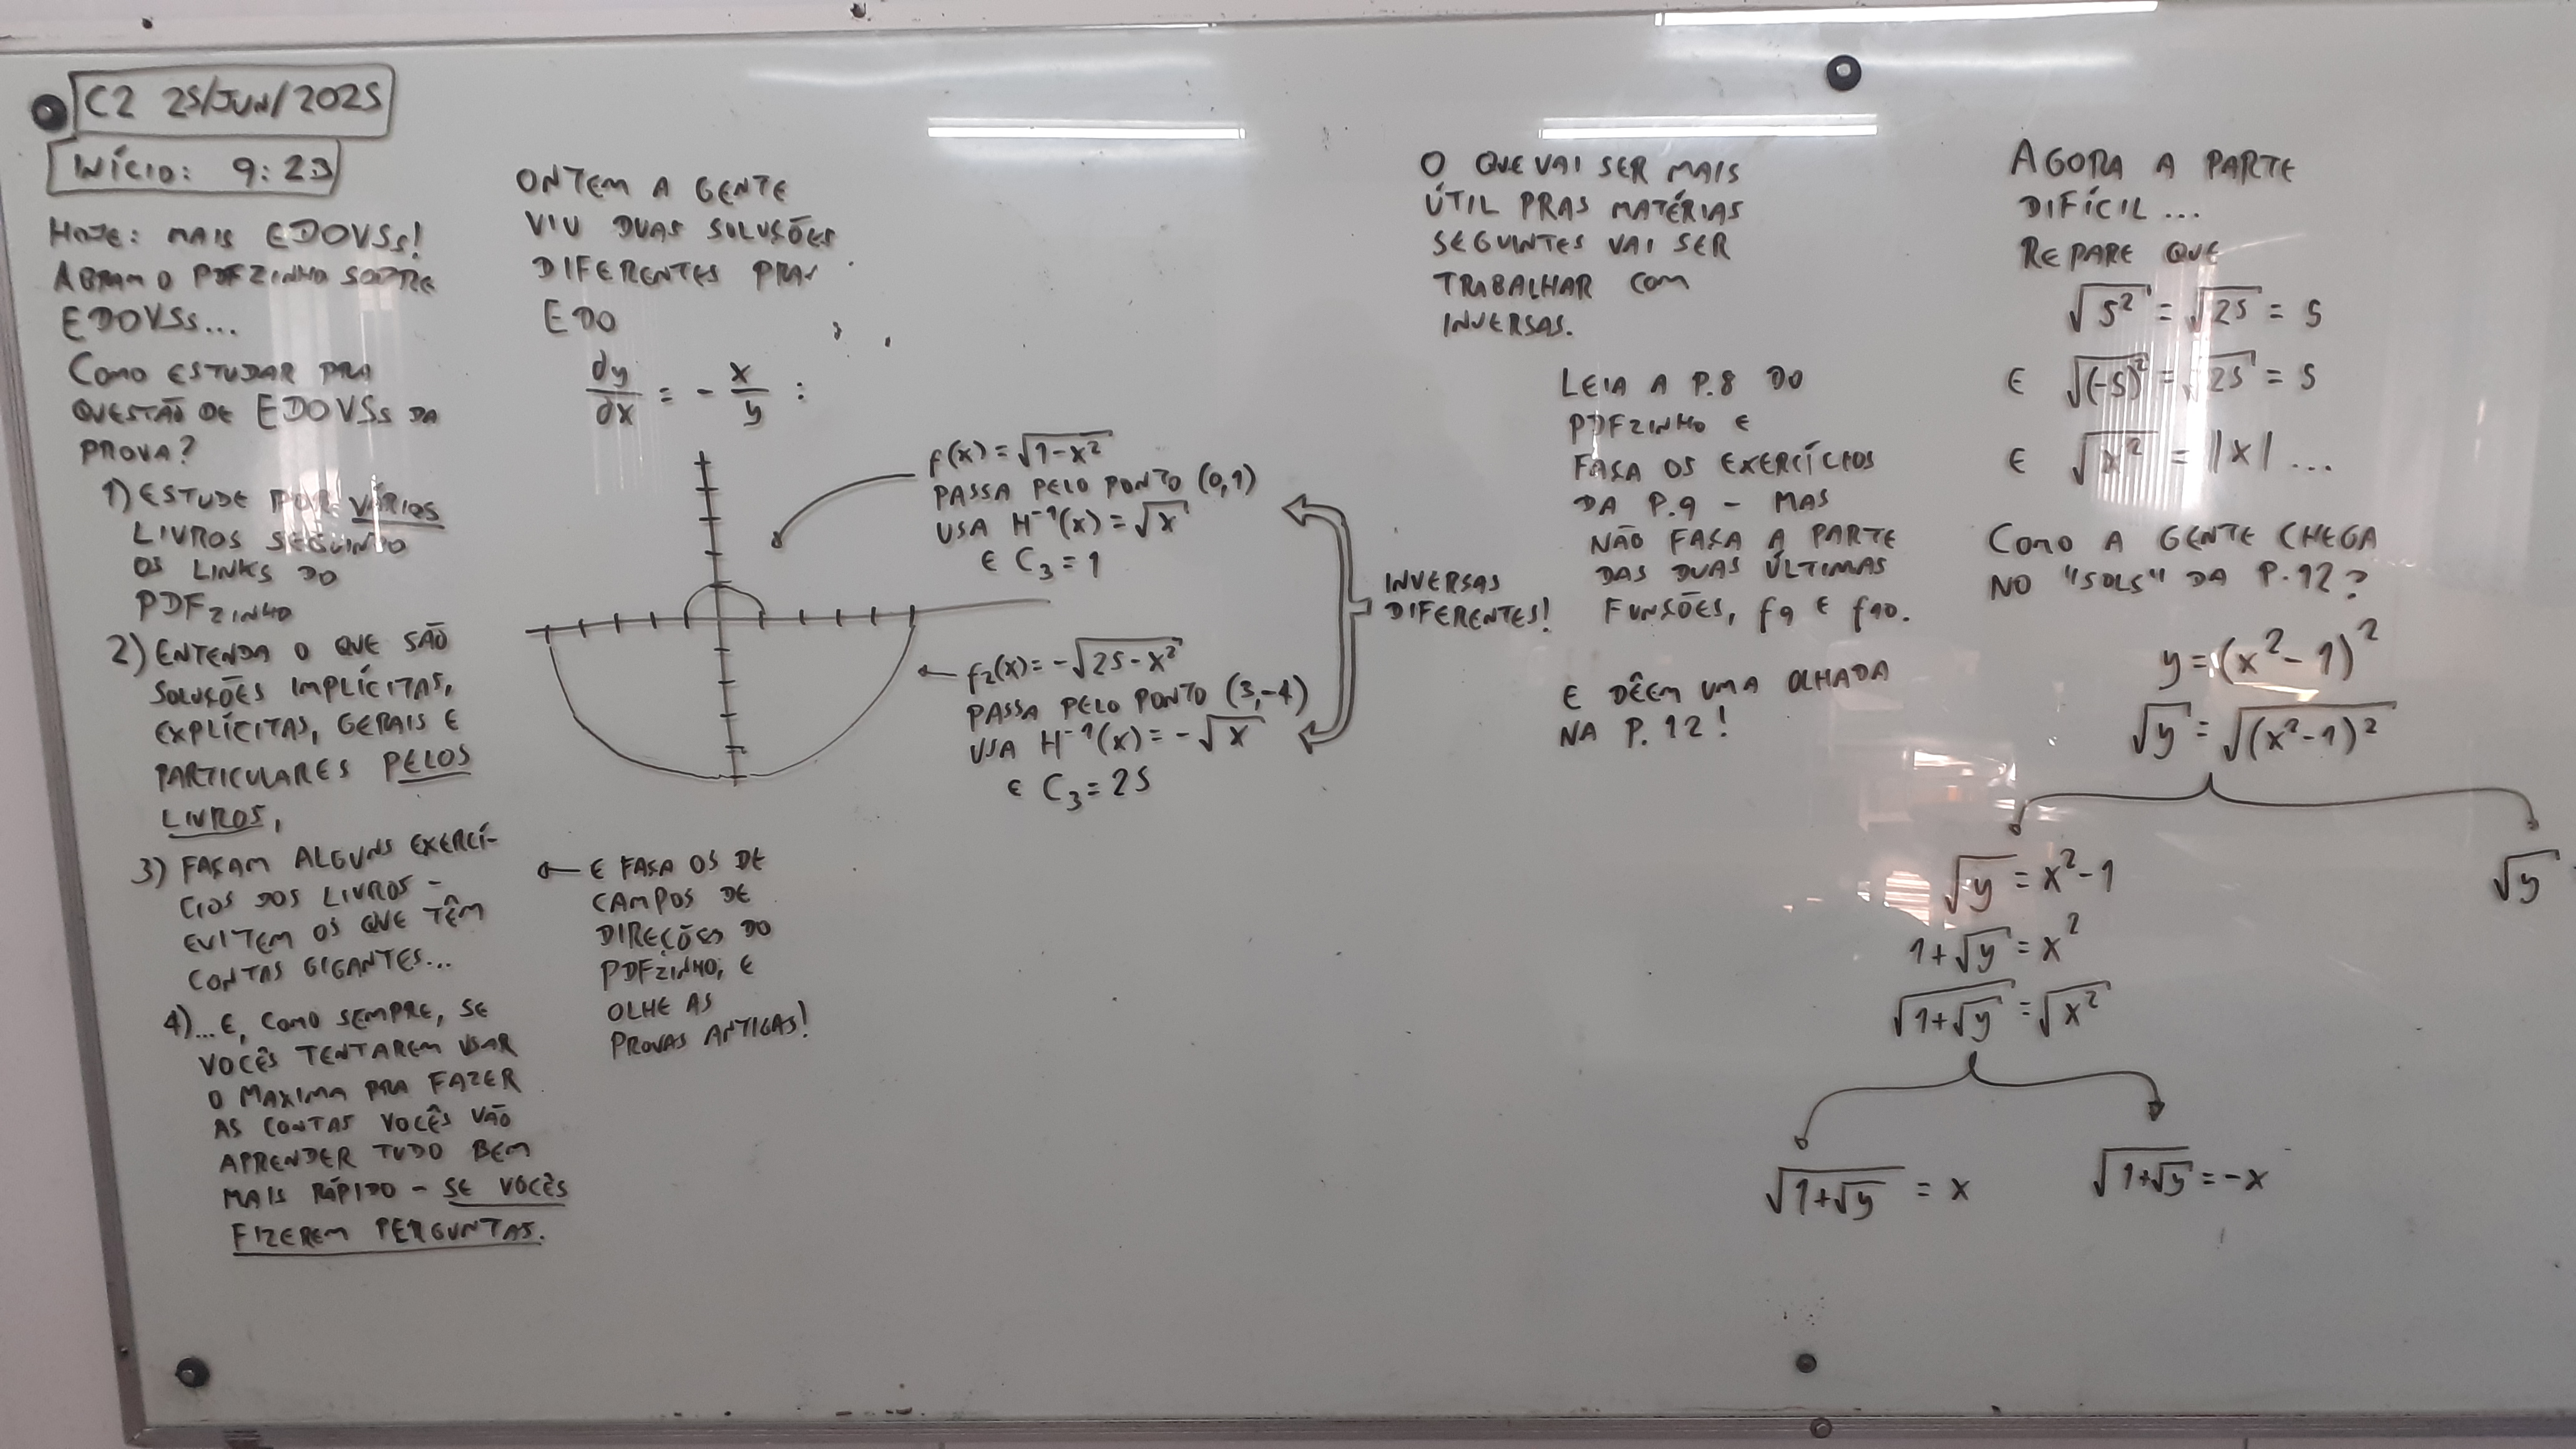 C2 25/JUN/2025
INÍCIO: 9:23
HOJE: MAIS EDOVSs!
ABRAM O PDFZINHO SOBRE
EDOVSs...
COMO ESTUDAR PRA
QUESTÃO DE EDOVSs DA
PROVA?
1) ESTUDE POR VÁRIOS
LIVROS SEGUINDO
OS LINKS DO
PDFZINHO
2) ENTENDA O QUE SÃO
SOLUÇÕES IMPLÍCITAS,
EXPLÍCITAS, GERAIS E
PARTICULARES PELOS
LIVROS,
3) FAÇAM ALGUNS EXERCÍ-
CIOS DOS LIVROS -
EVITEM OS QUE TÊM
CONTAS GIGANTES...
4) ...E, COMO SEMPRE, SE
VOCÊS TENTAREM USAR
O MAXIMA PRA FAZER
AS CONTAS VOCÊS VÃO
APRENDER TUDO BEM
MAIS RÁPIDO - SE VOCÊS
FIZEREM PERGUNTAS.
ONTEM A GENTE
VIU DUAS SOLUÇÕES
DIFERENTES PRA
EDO
dy/dx = - x/y :
f(x) = √(1-x²)
PASSA PELO PONTO (0,1)
USA H⁻¹(x) = √x
E C₃ = 1
f₂(x) = -√(25-x²)
PASSA PELO PONTO (3,-4)
USA H⁻¹(x) = -√x
E C₃ = 25
INVERSAS
DIFERENTES!
← E FAÇA OS DE
CAMPOS DE
DIREÇÕES DO
PDFZINHO, E
OLHE AS
PROVAS ANTIGAS!
O QUE VAI SER MAIS
ÚTIL PRAS MATÉRIAS
SEGUINTES VAI SER
TRABALHAR COM
INVERSAS.
LEIA A P.8 DO
PDFZINHO E
FAÇA OS EXERCÍCIOS
DA P.9 - MAS
NÃO FAÇA A PARTE
DAS DUAS ÚLTIMAS
FUNÇÕES, f9 E f10.
E DÊEM UMA OLHADA
NA P. 12!
AGORA A PARTE
DIFÍCIL...
REPARE QUE
√(5²) = √25 = 5
E √((-5)²) = √25 = 5
E √(x²) = |x| ...
COMO A GENTE CHEGA
NO "SOLS" DA P.12?
y = (x²-1)²
√y = √((x²-1)²)
√y = x²-1
√y
1+√y = x²
√(1+√y) = √(x²)
√(1+√y) = x
√(1+√y) = -x